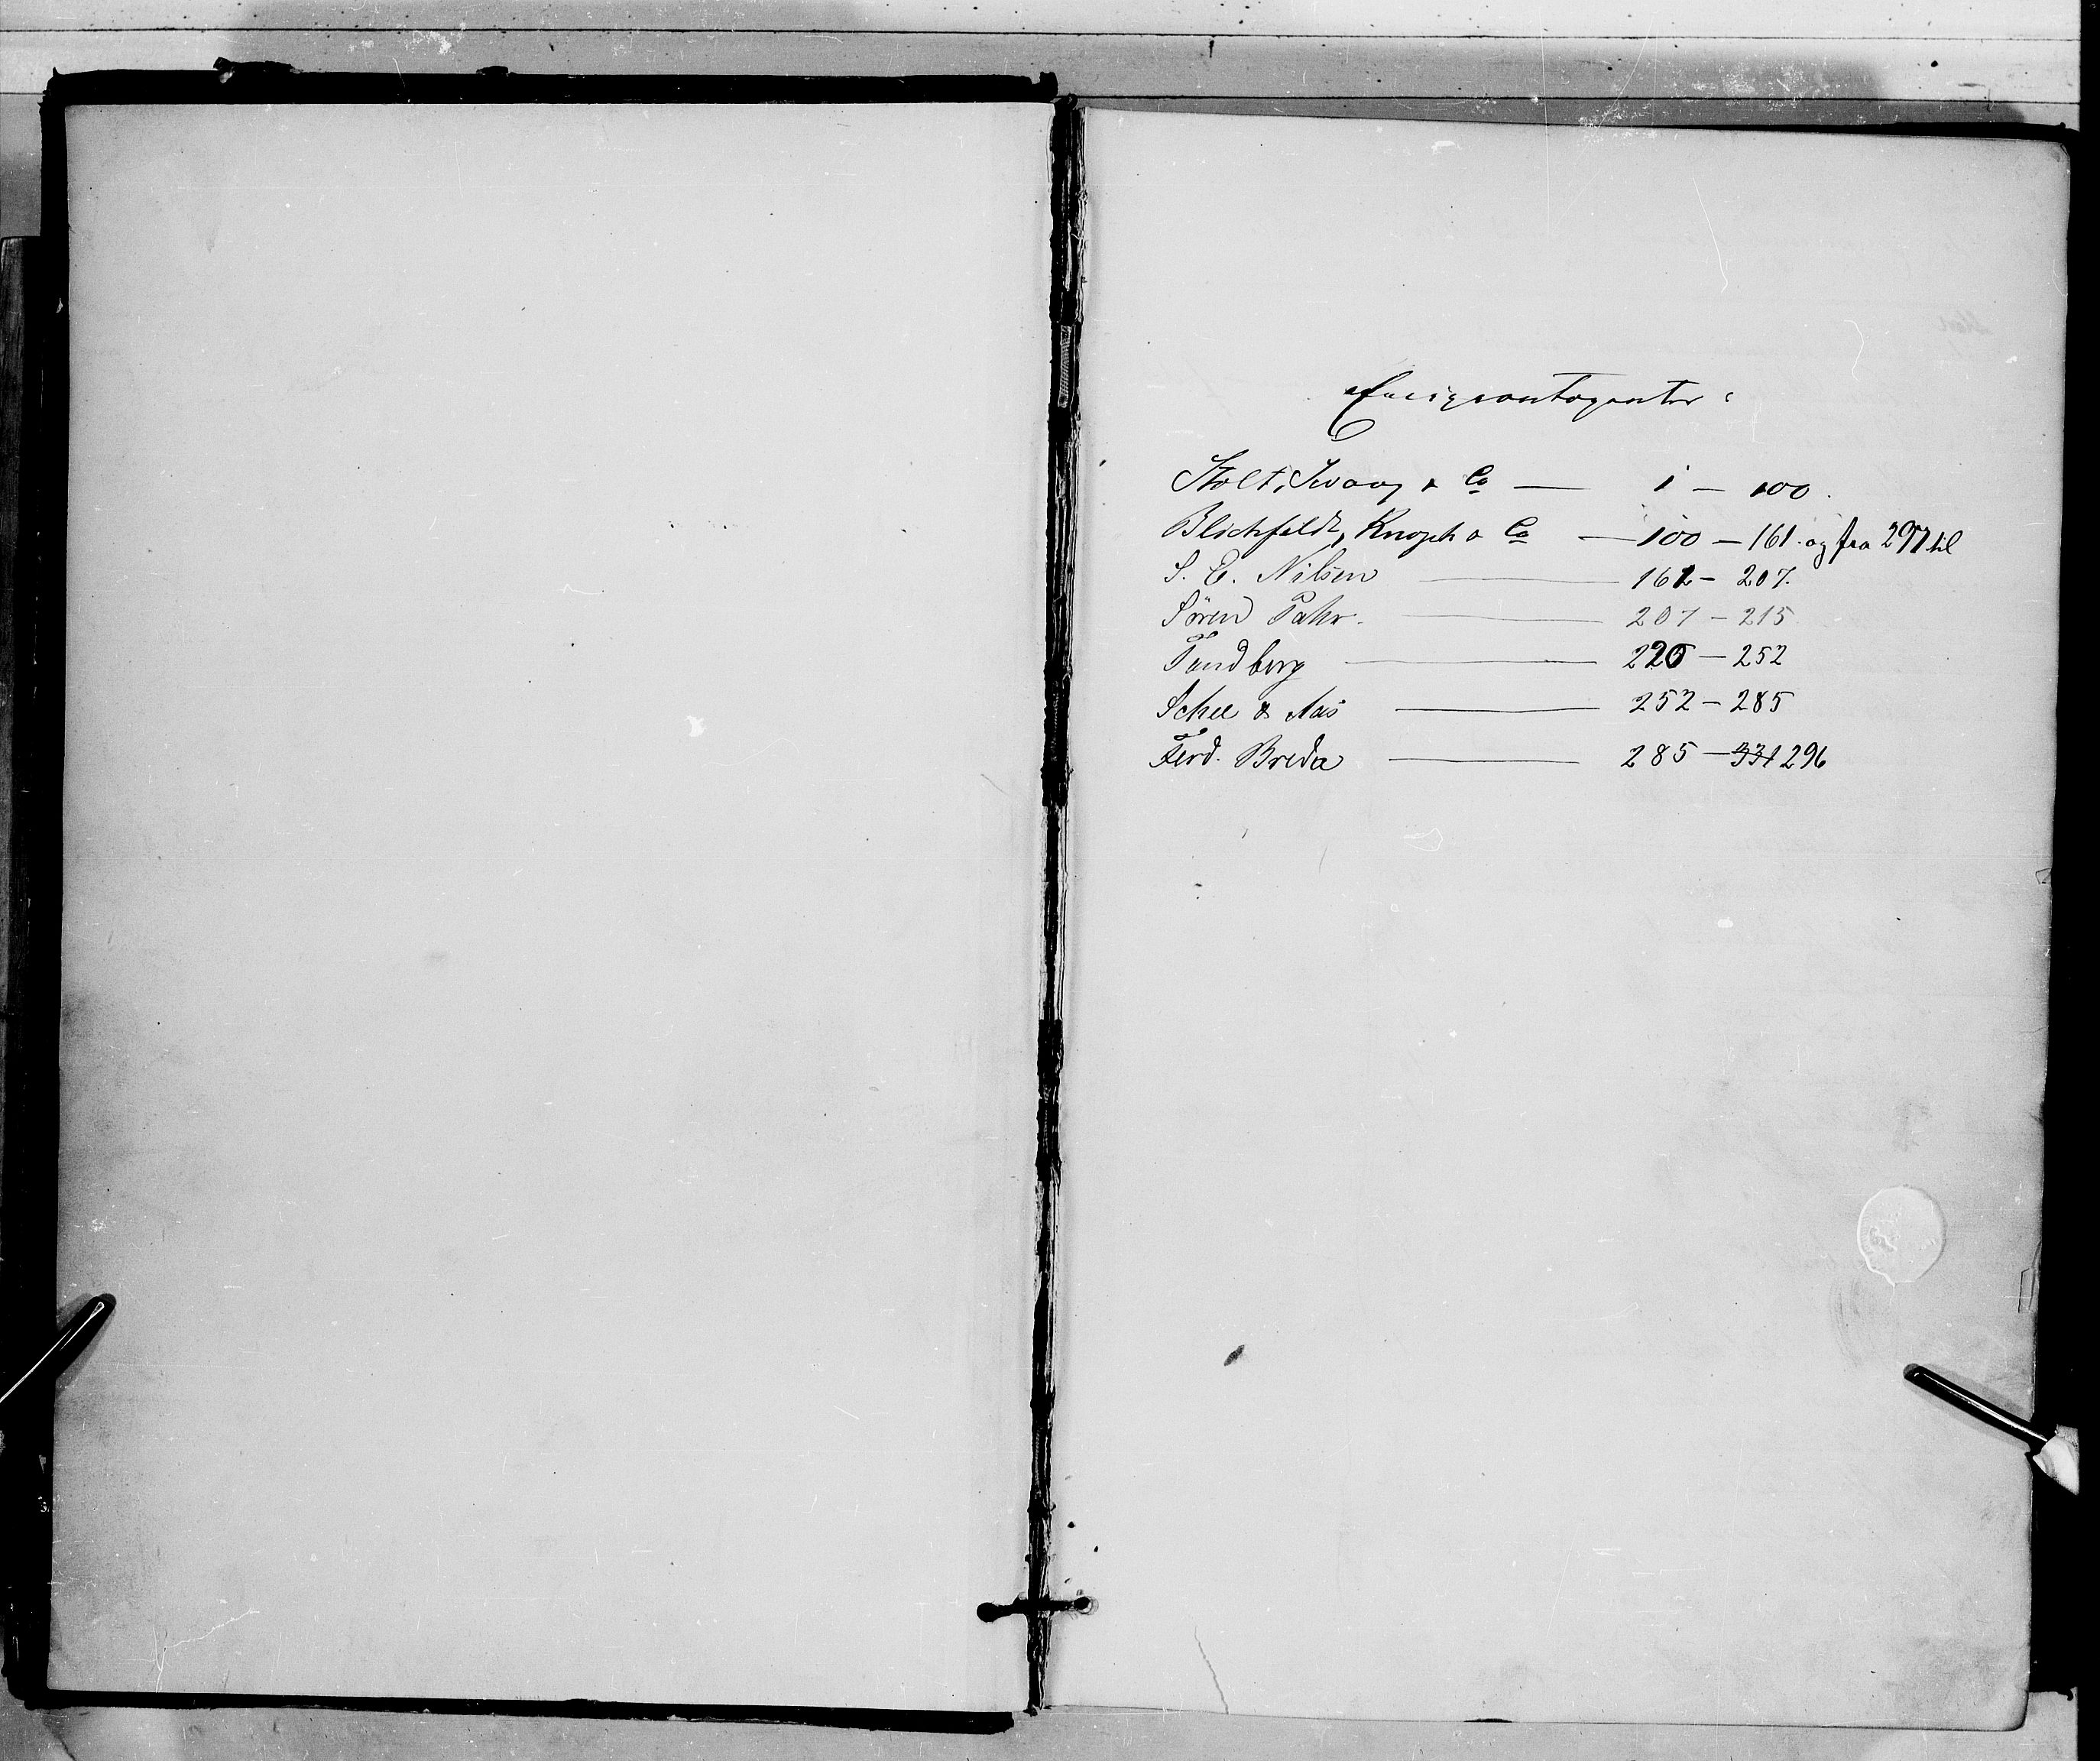 Emigrantagenter:
Stolt, Svaay & Co — 1 — 100.
Blichfeldt, Knoph & Co — 100 — 161. og fra 297 til
S. E. Nilsen — 162 — 207.
Sören Pahr. — 207 — 215
Tandberg — 220 — 252
Schee & Aas — 252 — 285
Ferd. Breda — 285 — 331 296